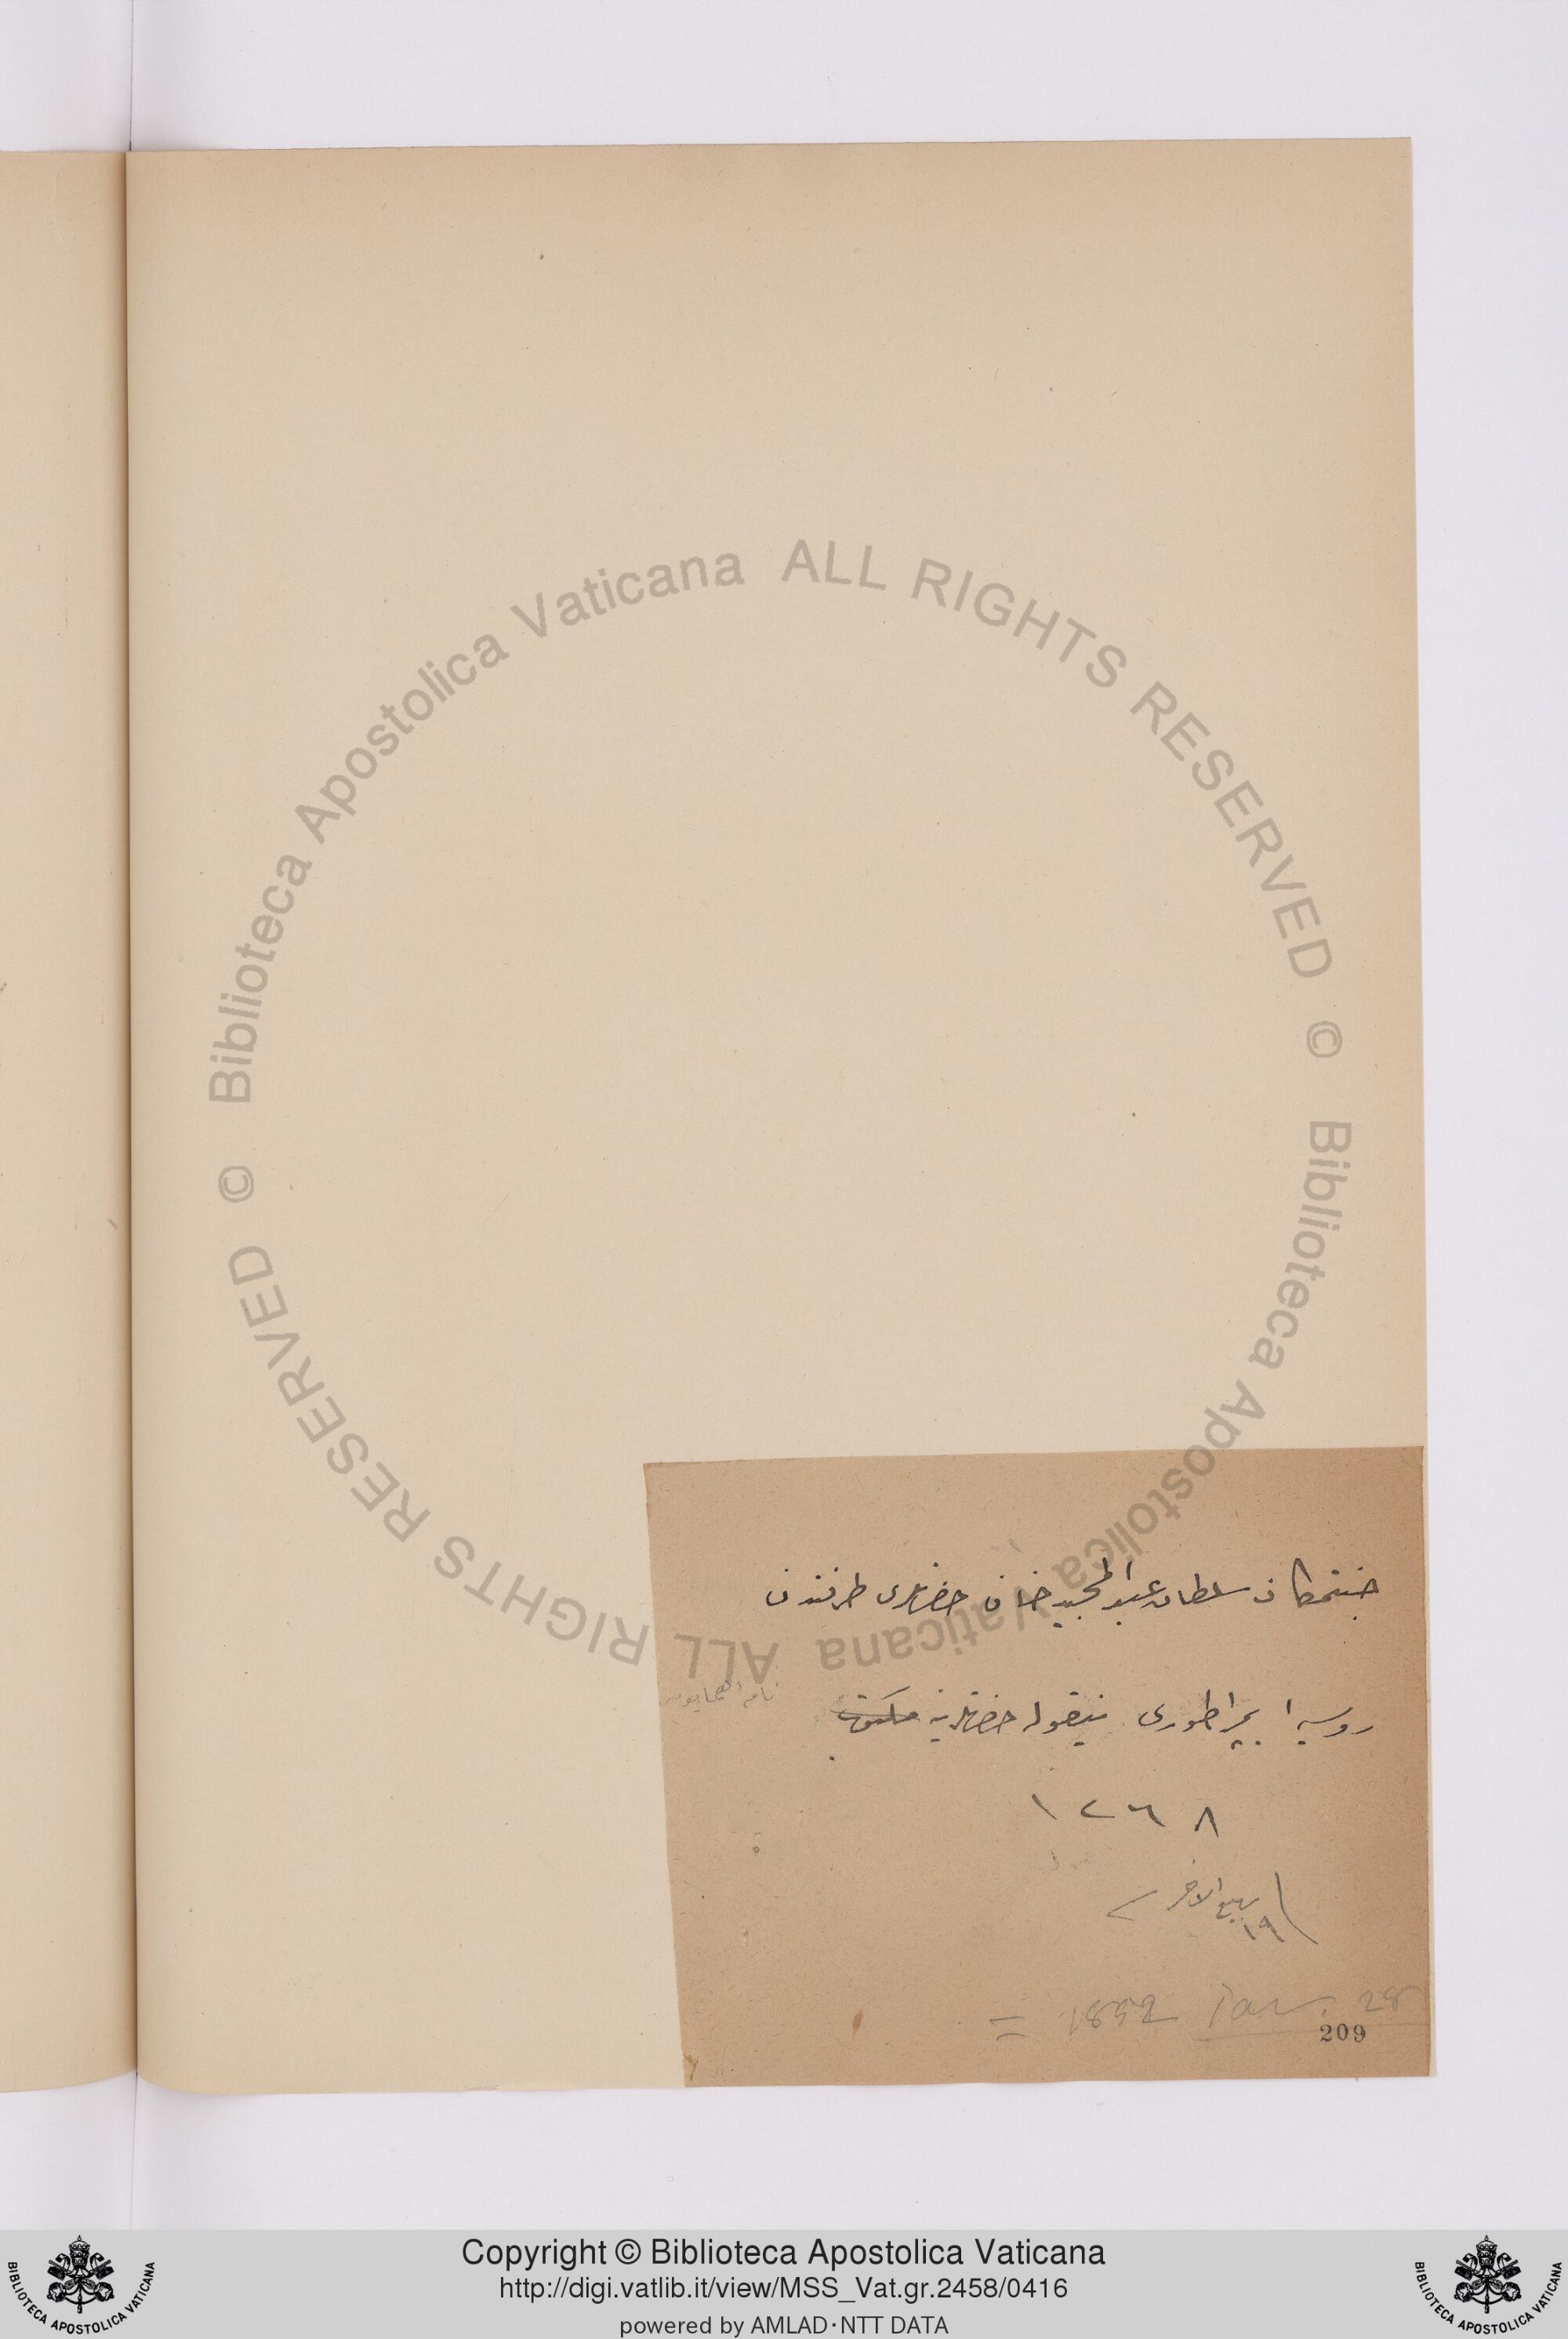 جنتمکان سلطان عبد المجید خان حضرتلری طرفندن
روسیه ایمپراطوری نیقولا حضرتلرینه مکتوب
نامه همایون
١٢٦٨
١٩ ربیع الاخر
= 1852 Jan. 28
209
Biblioteca Apostolica Vaticana ALL RIGHTS RESERVED ©
Biblioteca Apostolica Vaticana ALL RIGHTS RESERVED ©
Copyright © Biblioteca Apostolica Vaticana
http://digi.vatlib.it/view/MSS_Vat.gr.2458/0416
powered by AMLAD·NTT DATA
BIBLIOTECA APOSTOLICA VATICANA
BIBLIOTECA APOSTOLICA VATICANA